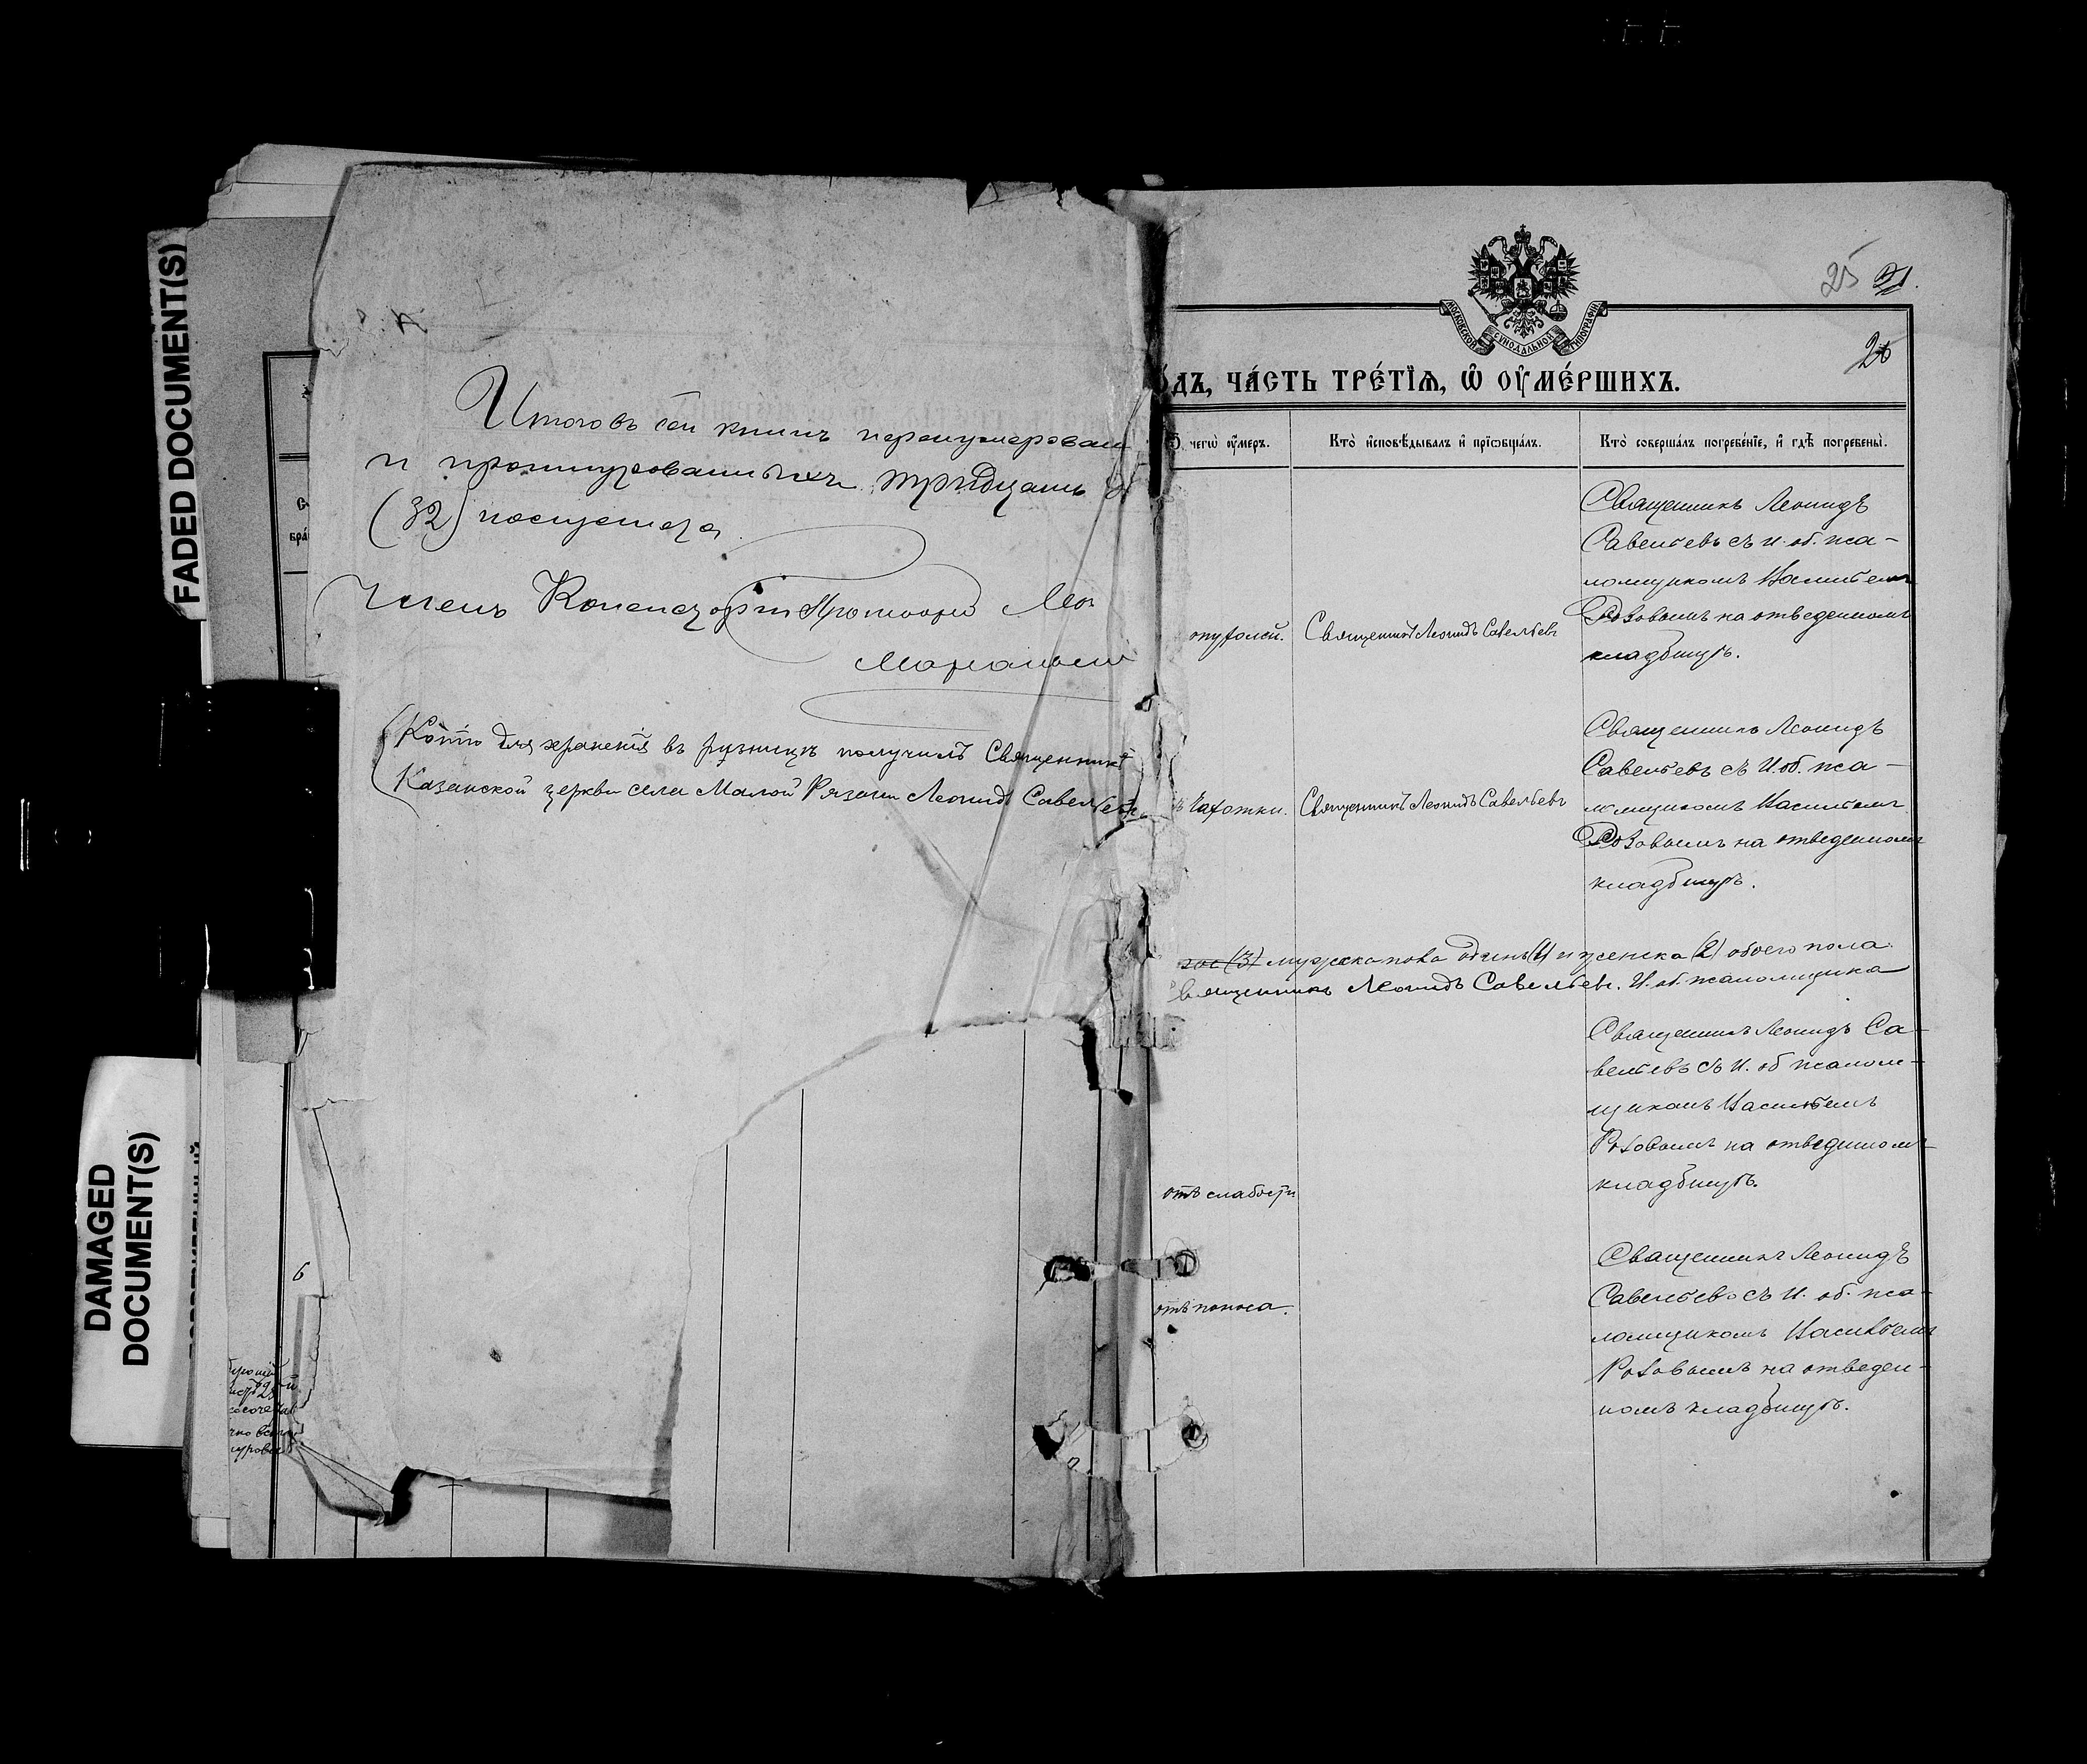 FADED DOCUMENT(S)
DAMAGED
DOCUMENT(S)
Итого въ сей книгѣ перенумерован
и прошнурованныхъ тридцать д
(32) полулиста
Членъ Консисторіи Протоіерей
(Копію для храненія въ ризницѣ получилъ Священникъ
Казанской церкви села Малой Рязани Леонидъ Савельевъ
6
25 21.
26
МОСКОВСКОЙ СѴНОДАЛЬНОЙ ТИПОГРАФІИ
ОДЪ, ЧА́СТЬ ТРЕ́ТЇѦ, Ѡ҆ ОУ҆МЕ́РШИХЪ.
чегѡ̀ оу҆́меръ.
Кто̀ и҆сповѣ́дывалъ и҆ прїѡбща́лъ.
Кто̀ соверша́лъ погребе́нїе, и҆ гдѣ̀ погребены̀.
Священникъ Леонидъ
Савельевъ съ и. об. пса-
ломщикомъ Василіемъ
Розовымъ на отведенномъ
кладбищѣ.
опухолей.
Священникъ Леонидъ Савельевъ
Священникъ Леонидъ
Савельевъ съ И. об. пса-
ломщикомъ Василіемъ
Розовымъ на отведенномъ
кладбищѣ.
чахотки.
Священникъ Леонидъ Савельевъ
(3) мужска пола одинъ (1) и женска (2) обоего пола
Священникъ Леонидъ Савельевъ. И. об. псаломщика
Священникъ Леонидъ Са-
вельевъ съ И. об псалом-
щикомъ Василіемъ
Розовымъ на отведенномъ
кладбищѣ.
отъ слабости
Священникъ Леонидъ
Савельевъ съ И. об. пса-
ломщикомъ Василіемъ
Розовымъ на отведен-
номъ кладбищѣ.
отъ поноса.